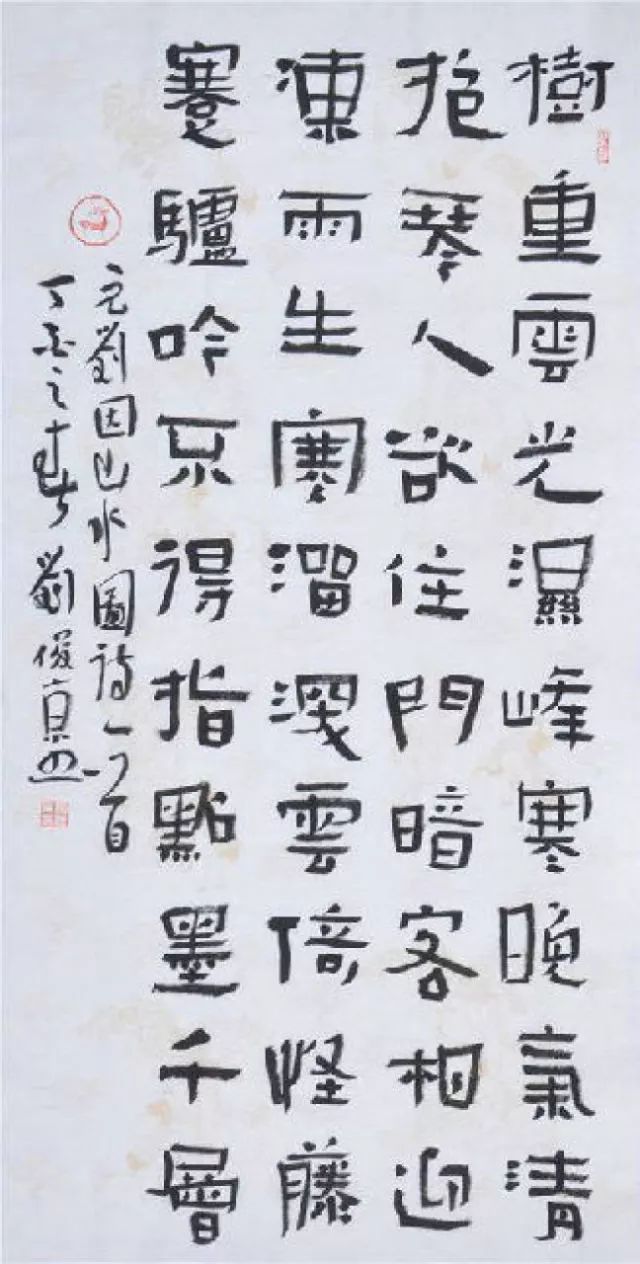 樹重雲光濕峰寒晚氣清
抱琴人欲住門暗客相迎
凍雨生寒溜深雲倚怪藤
蹇驢吟不得指點墨千層
元劉因山水圖詩一首
丁酉之春劉俊京